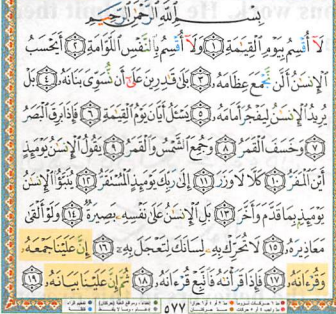 بِسْمِ اللَّهِ الرَّحْمَٰنِ الرَّحِيمِ
لَا أُقْسِمُ بِيَوْمِ الْقِيَامَةِ ١ وَلَا أُقْسِمُ بِالنَّفْسِ اللَّوَّامَةِ ٢ أَيَحْسَبُ
الْإِنسَانُ أَلَّن نَّجْمَعَ عِظَامَهُ ٣ بَلَىٰ قَادِرِينَ عَلَىٰ أَن نُّسَوِّيَ بَنَانَهُ ٤ بَلْ
يُرِيدُ الْإِنسَانُ لِيَفْجُرَ أَمَامَهُ ٥ يَسْأَلُ أَيَّانَ يَوْمُ الْقِيَامَةِ ٦ فَإِذَا بَرِقَ الْبَصَرُ
٧ وَخَسَفَ الْقَمَرُ ٨ وَجُمِعَ الشَّمْسُ وَالْقَمَرُ ٩ يَقُولُ الْإِنسَانُ يَوْمَئِذٍ
أَيْنَ الْمَفَرُّ ١٠ كَلَّا لَا وَزَرَ ١١ إِلَىٰ رَبِّكَ يَوْمَئِذٍ الْمُسْتَقَرُّ ١٢ يُنَبَّأُ الْإِنسَانُ
يَوْمَئِذٍ بِمَا قَدَّمَ وَأَخَّرَ ١٣ بَلِ الْإِنسَانُ عَلَىٰ نَفْسِهِ بَصِيرَةٌ ١٤ وَلَوْ أَلْقَىٰ
مَعَاذِيرَهُ ١٥ لَا تُحَرِّكْ بِهِ لِسَانَكَ لِتَعْجَلَ بِهِ ١٦ إِنَّ عَلَيْنَا جَمْعَهُ
وَقُرْآنَهُ ١٧ فَإِذَا قَرَأْنَاهُ فَاتَّبِعْ قُرْآنَهُ ١٨ ثُمَّ إِنَّ عَلَيْنَا بَيَانَهُ ١٩
٥٧٧